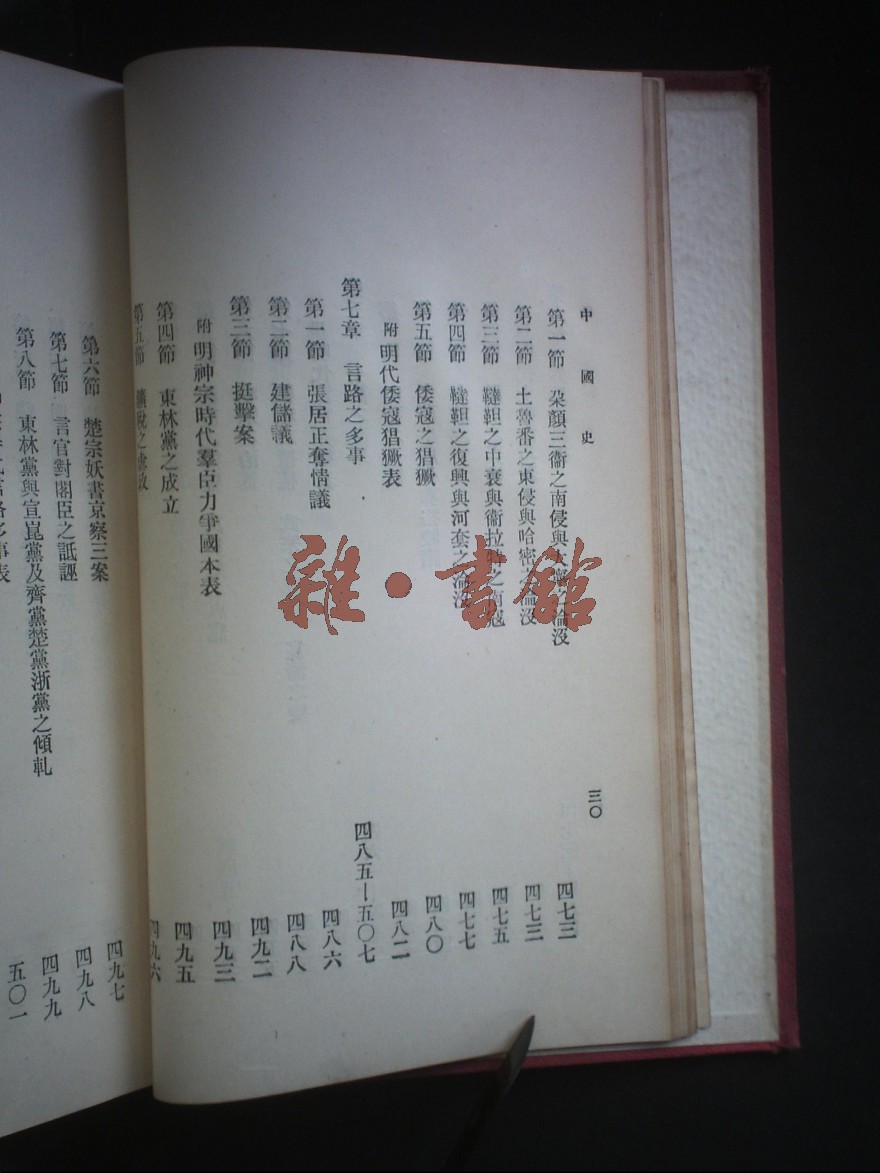 中國史
三〇
第一節 朶顏三衞之南侵與大寧之淪沒 四七三
第二節 土魯番之東侵與哈密之淪沒 四七三
第三節 韃靼之中衰與衞拉特之南寇 四七五
第四節 韃靼之復興與河套之淪沒 四七七
第五節 倭寇之猖獗 四八〇
附 明代倭寇猖獗表 四八二
第七章 言路之多事 四八五—五〇七
第一節 張居正奪情議 四八六
第二節 建儲議 四八八
第三節 挺擊案 四九二
附 明神宗時代羣臣力爭國本表 四九三
第四節 東林黨之成立 四九五
第五節 鑛稅之 四九六
第六節 楚宗妖書京察三案 四九七
第七節 言官對閣臣之詆誣 四九八
第八節 東林黨與宣崑黨及齊黨楚黨浙黨之傾軋 四九九
多事表 五〇一
雜·書館